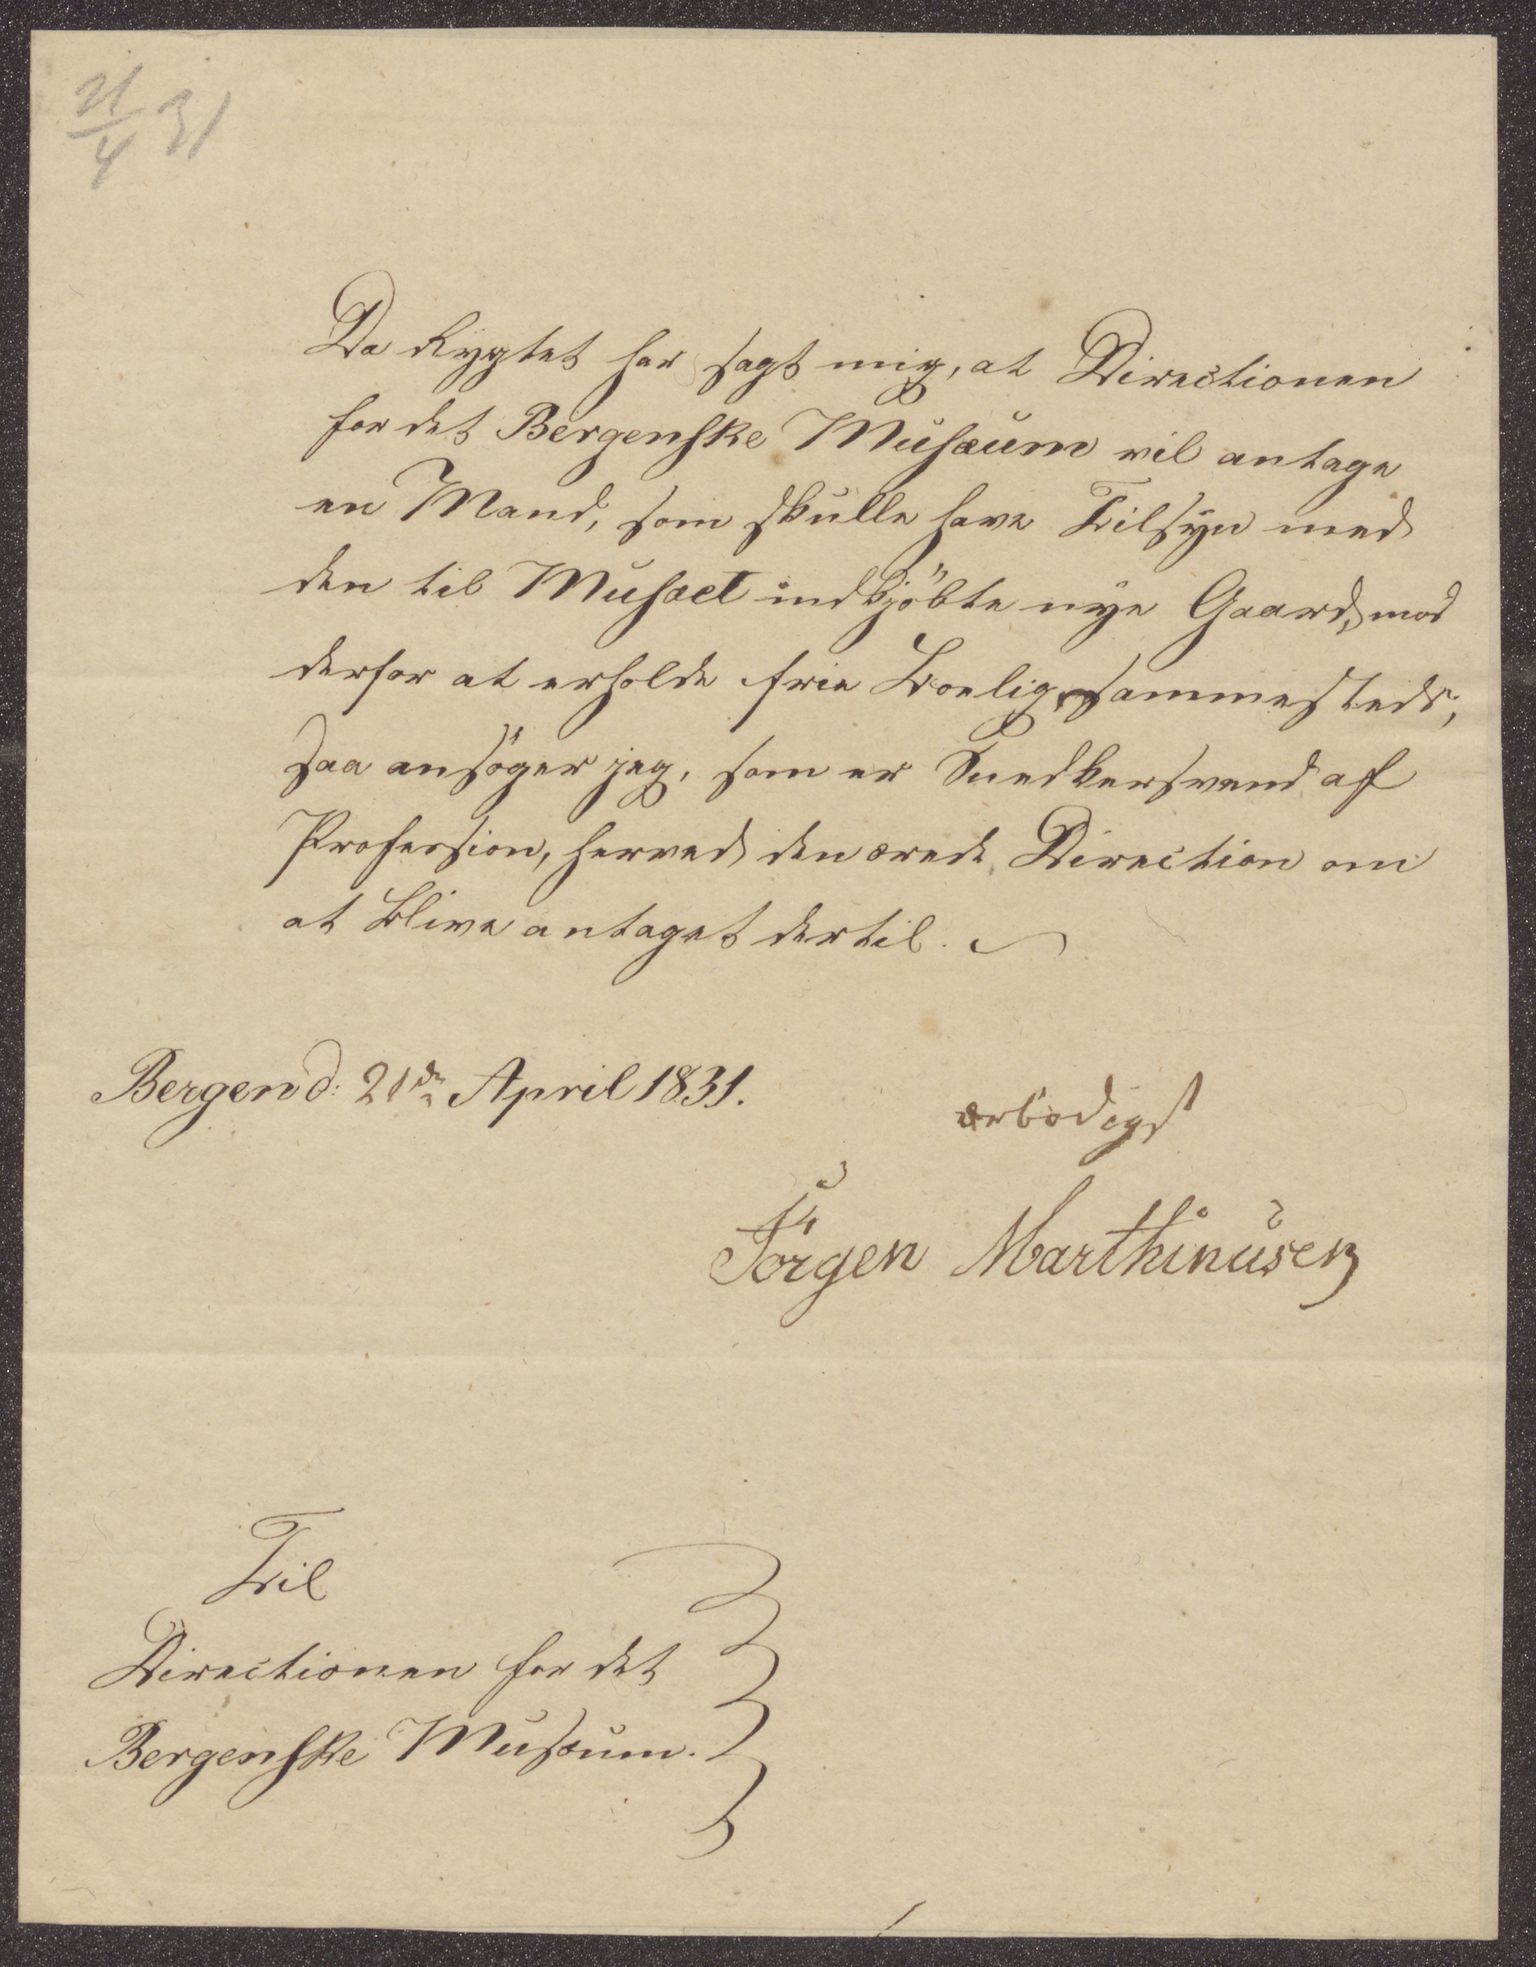 21/4 31
Da Rygtet har sagt mig, at Directionen
for det Bergenske Musæum vil antage
en Mand, som skulle have Tilsyn med
den til Musæet indkjöbte nye Gaard, mod
derfor at erholde frie Boelig sammesteds;
saa ansöger jeg, som er Snedkersvend af
Profession, herved den ærede Direction om
at blive antaget dertil.
Bergen d: 21de April 1831.
ærbödigst
Jörgen Marthinüsen
Til
Directionen for det
Bergenske Musæum.